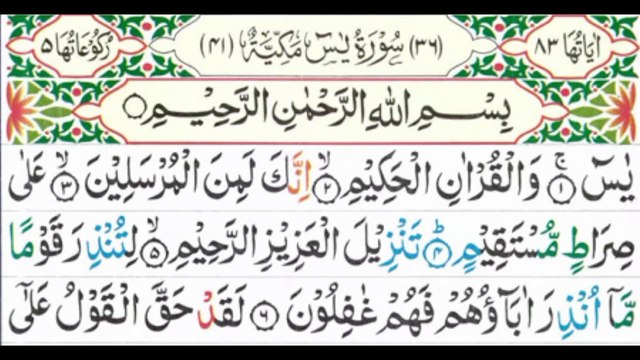 اٰيَاتُهَا ٨٣ (٣٦) سُوْرَةُ يٰسٓ مَكِّيَّةٌ (٤١) رُكُوْعَاتُهَا ٥
بِسْمِ اللهِ الرَّحْمٰنِ الرَّحِيْمِ
يٰسٓ ۚ ١ وَالْقُرْاٰنِ الْحَكِيْمِ ۙ ٢ اِنَّكَ لَمِنَ الْمُرْسَلِيْنَ ۙ ٣ عَلٰى
صِرَاطٍ مُّسْتَقِيْمٍ ؕ ٤ تَنْزِيْلَ الْعَزِيْزِ الرَّحِيْمِ ۙ ٥ لِتُنْذِرَ قَوْمًا
مَّاۤ اُنْذِرَ اٰبَآؤُهُمْ فَهُمْ غٰفِلُوْنَ ٦ لَقَدْ حَقَّ الْقَوْلُ عَلٰٓى